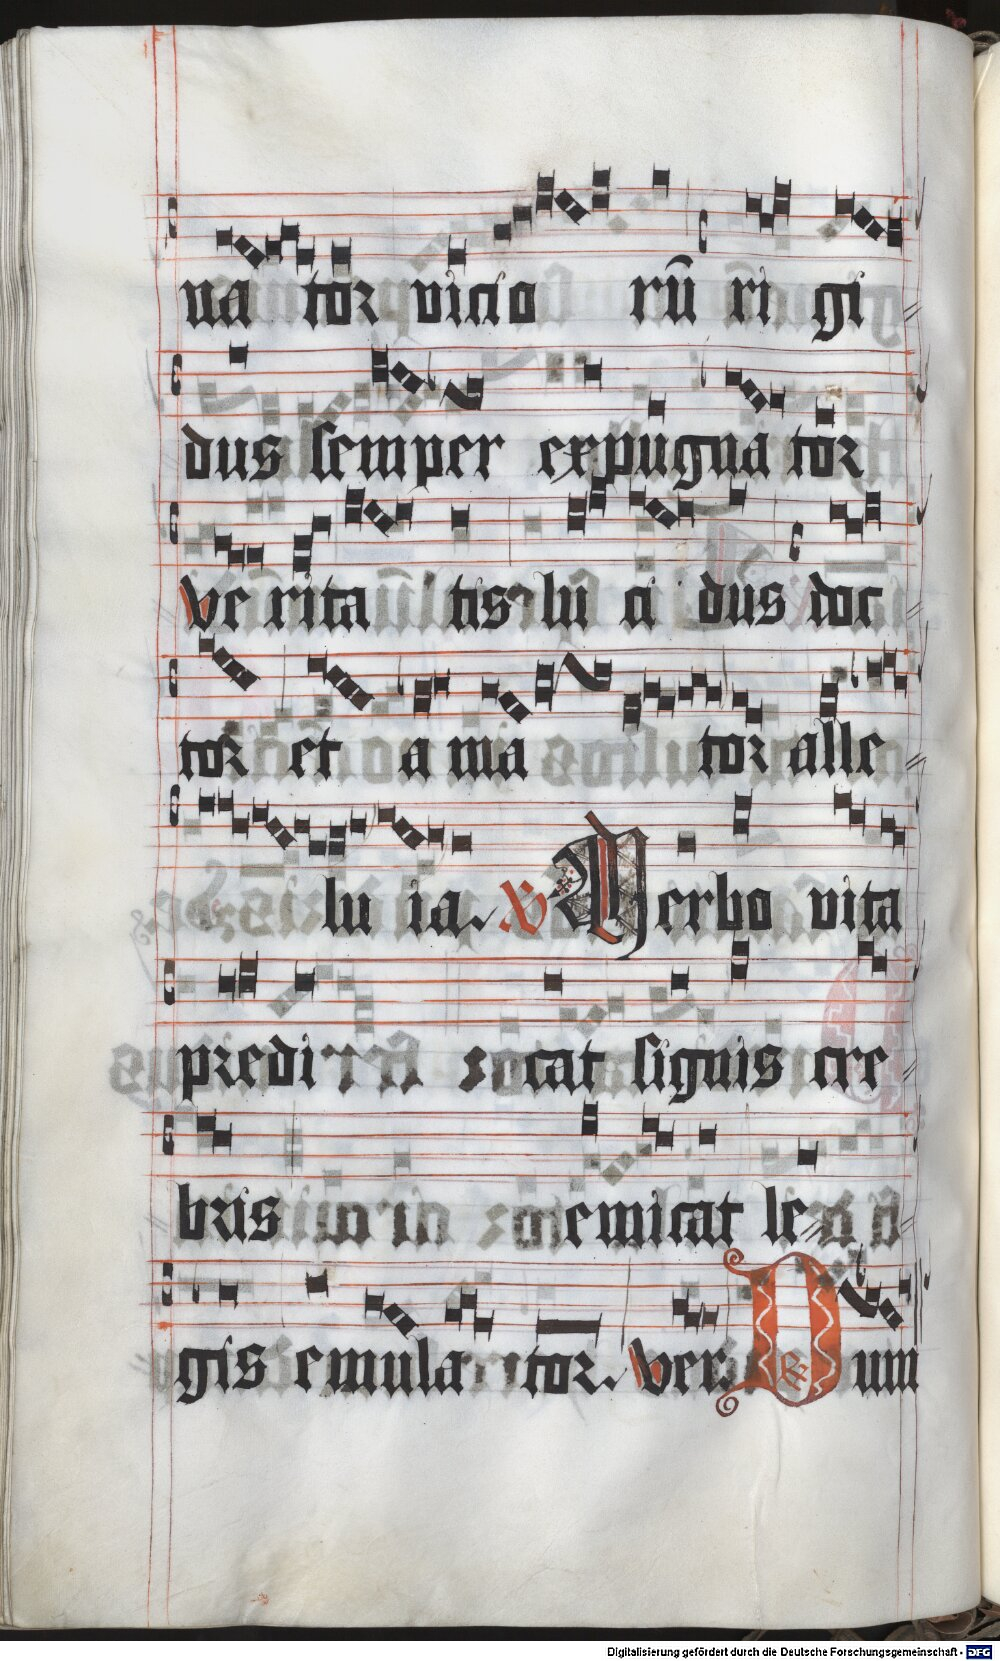 na tor vicio rū ri gi
dus semper expugna tor
Ve rita tis lu ci dus doc
tor et a ma tor alle
lu ia. ℣ Verbo vita
predi cat signis cre
bris emicat le
gis emula tor. Ver Dum
Digitalisierung gefördert durch die Deutsche Forschungsgemeinschaft - DFG